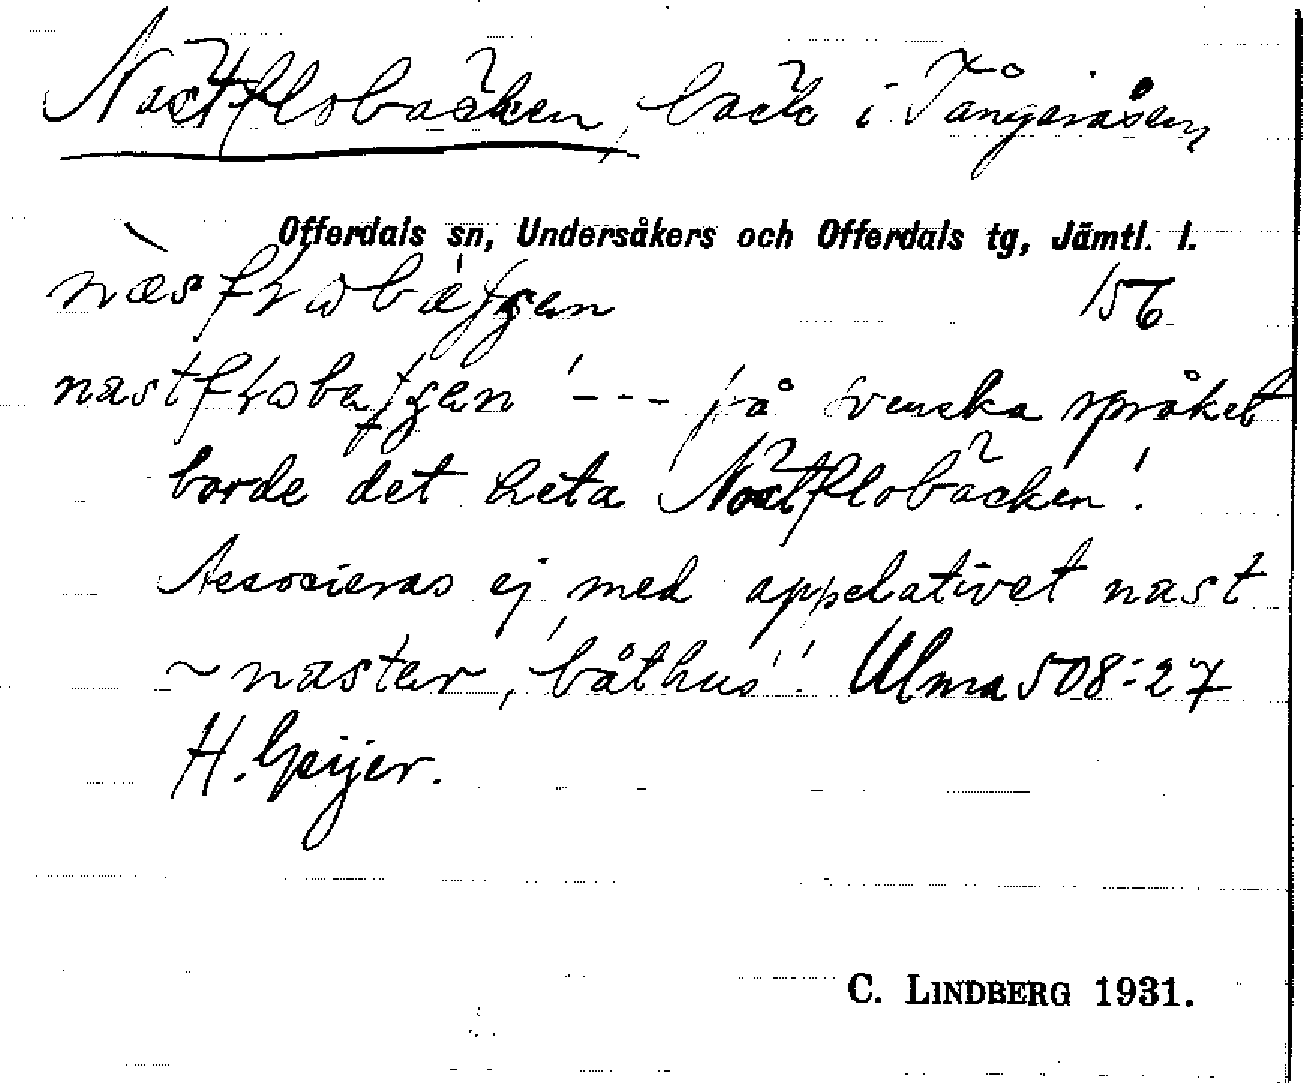 Nästflobäcken, bäck i Tångeråsen
Offerdals sn, Undersåkers och Offerdals tg, Jämtl. l.
156
nastflobaɟɟen ' - - - på svenska språket
borde det heta Nästflobäcken'.
Associeras ej med appelativet nast
~ naster, 'båthus'! Ulma 508:27
H. Geijer.
C. LINDBERG 1931.